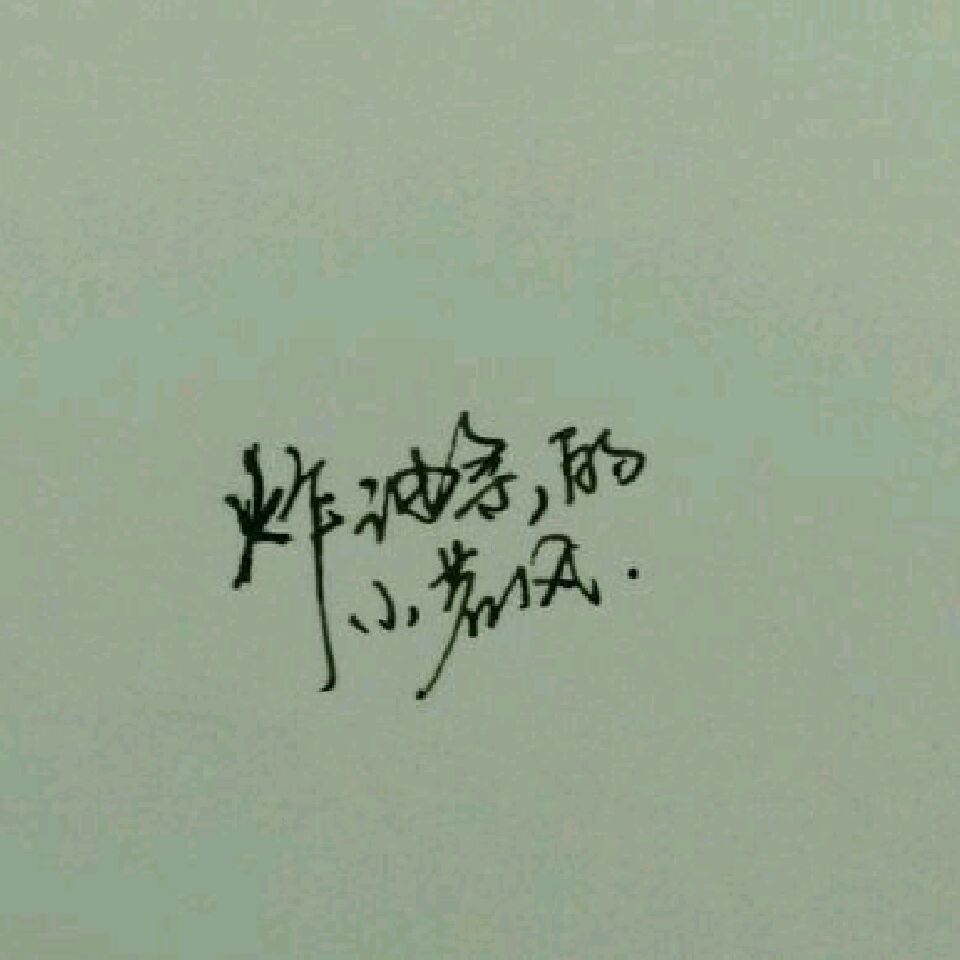 炸油条,的
小岩风.